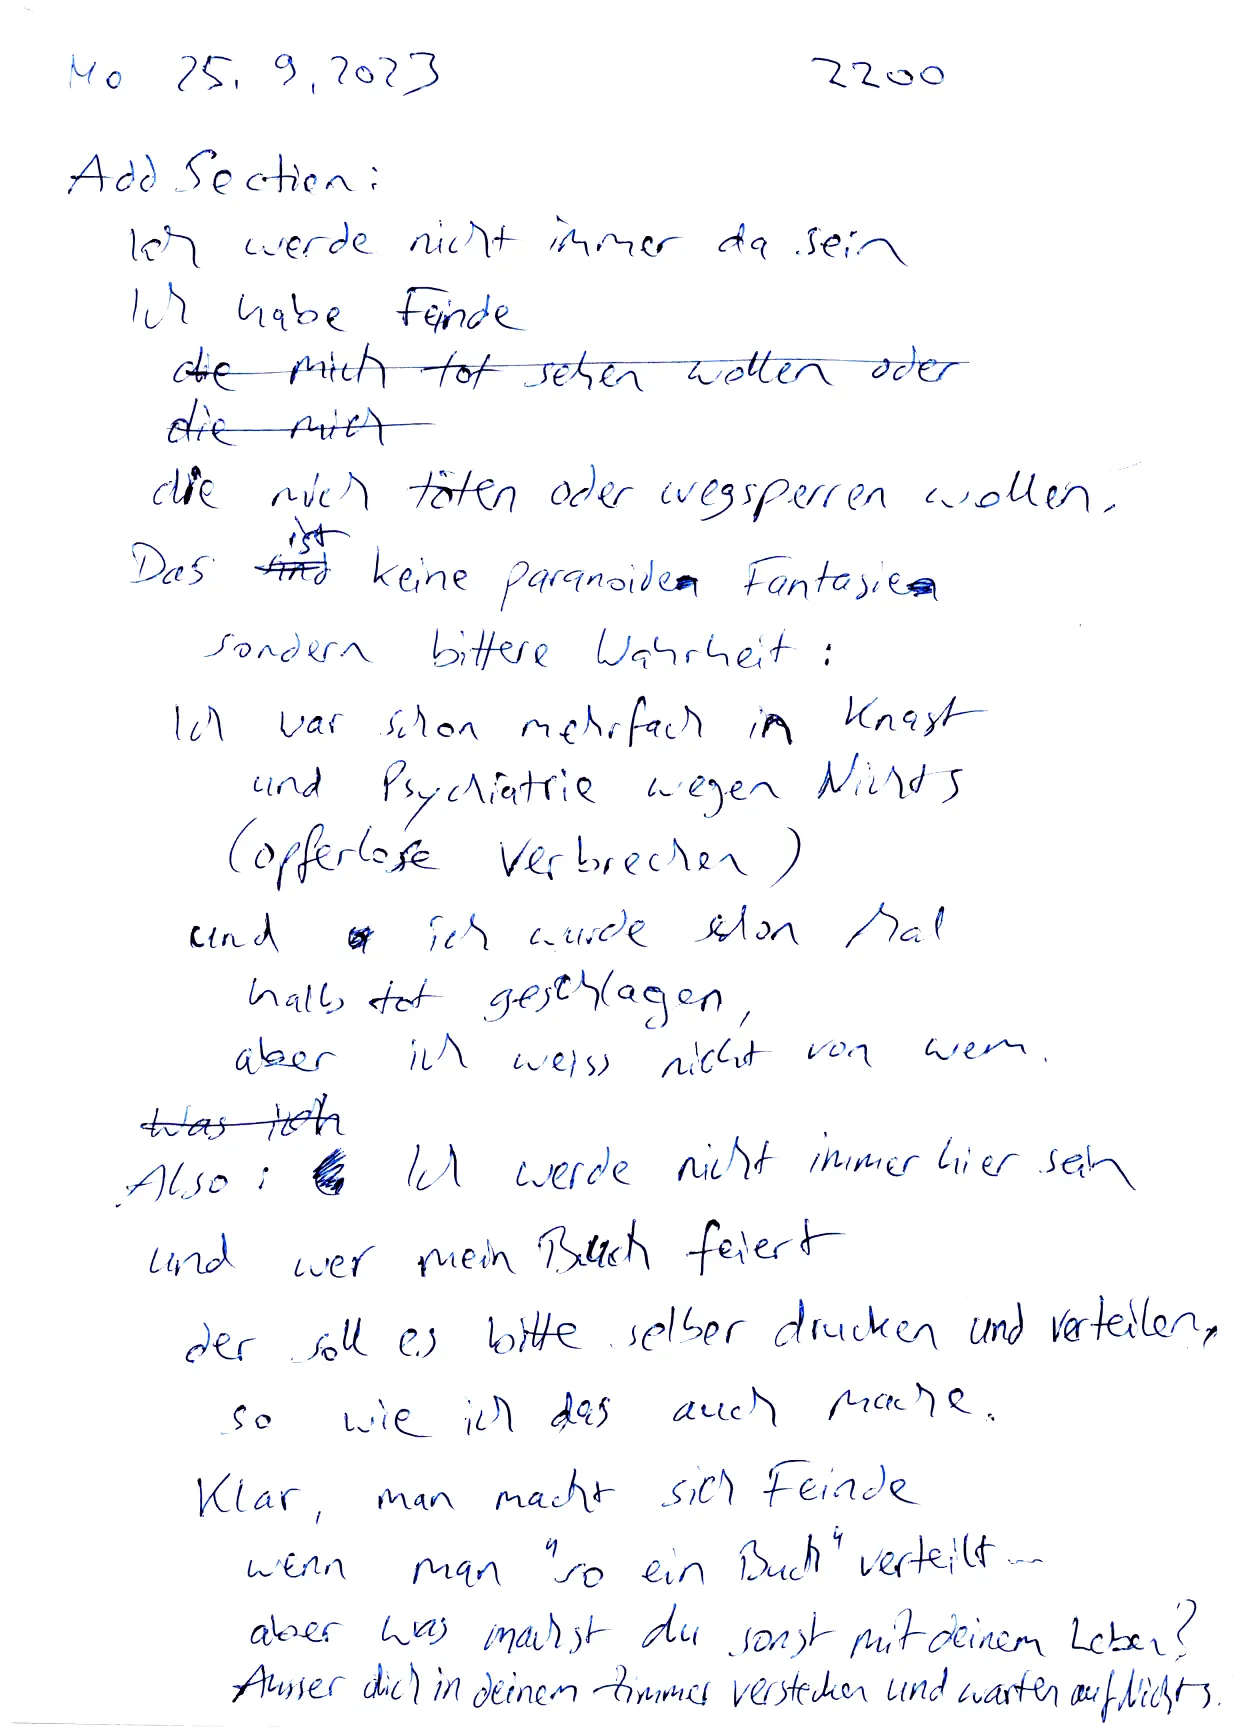 Mo 25.9.2023 2200
Add Section:
Ich werde nicht immer da sein
Ich habe Feinde
die mich tot sehen wollen oder
die mich
die mich töten oder wegsperren wollen.
ist
Das sind keine paranoide Fantasie
sondern bittere Wahrheit:
Ich war schon mehrfach in Knast
und Psychiatrie wegen Nichts
(opferlose Verbrechen)
und ich wurde schon Mal
halb tot geschlagen,
aber ich weiss nicht von wem.
Was ich
Also: Ich werde nicht immer hier sein
und wer mein Buch feiert
der soll es bitte selber drucken und verteilen,
so wie ich das auch mache.
Klar, man macht sich Feinde
wenn man "so ein Buch" verteilt...
aber was machst du sonst mit deinem Leben?
Ausser dich in deinem Zimmer verstecken und warten auf Nichts.